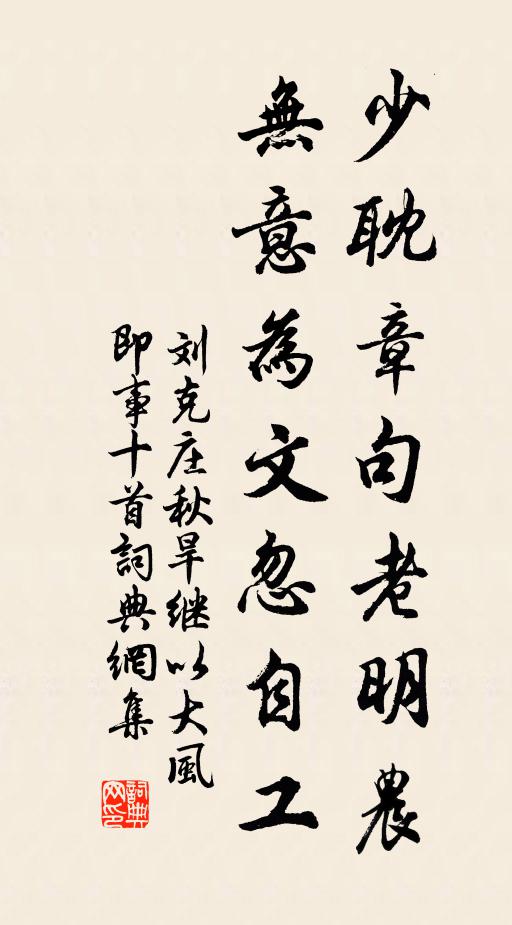 少耽章句老明農
無意為文忽自工
刘克庄秋旱继以大風
即事十首詞典網集
詞典网印